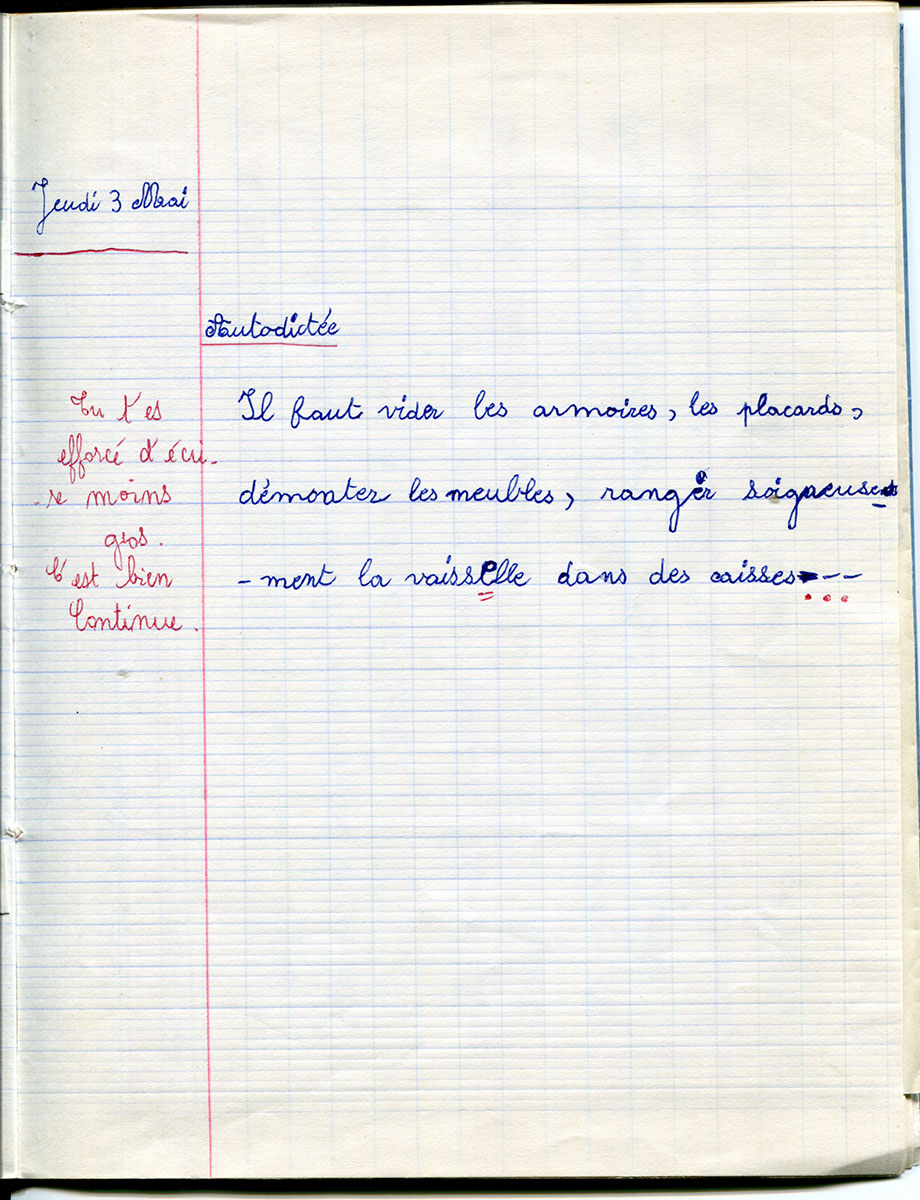 Jeudi 3 Mai
Autodictée
Tu t'es
efforcé d'écri-
-re moins
gros.
C'est bien
Continue.
Il faut vider les armoires, les placards,
démonter les meubles, ranger soigneuse-
-ment la vaisselle dans des caisses---
...